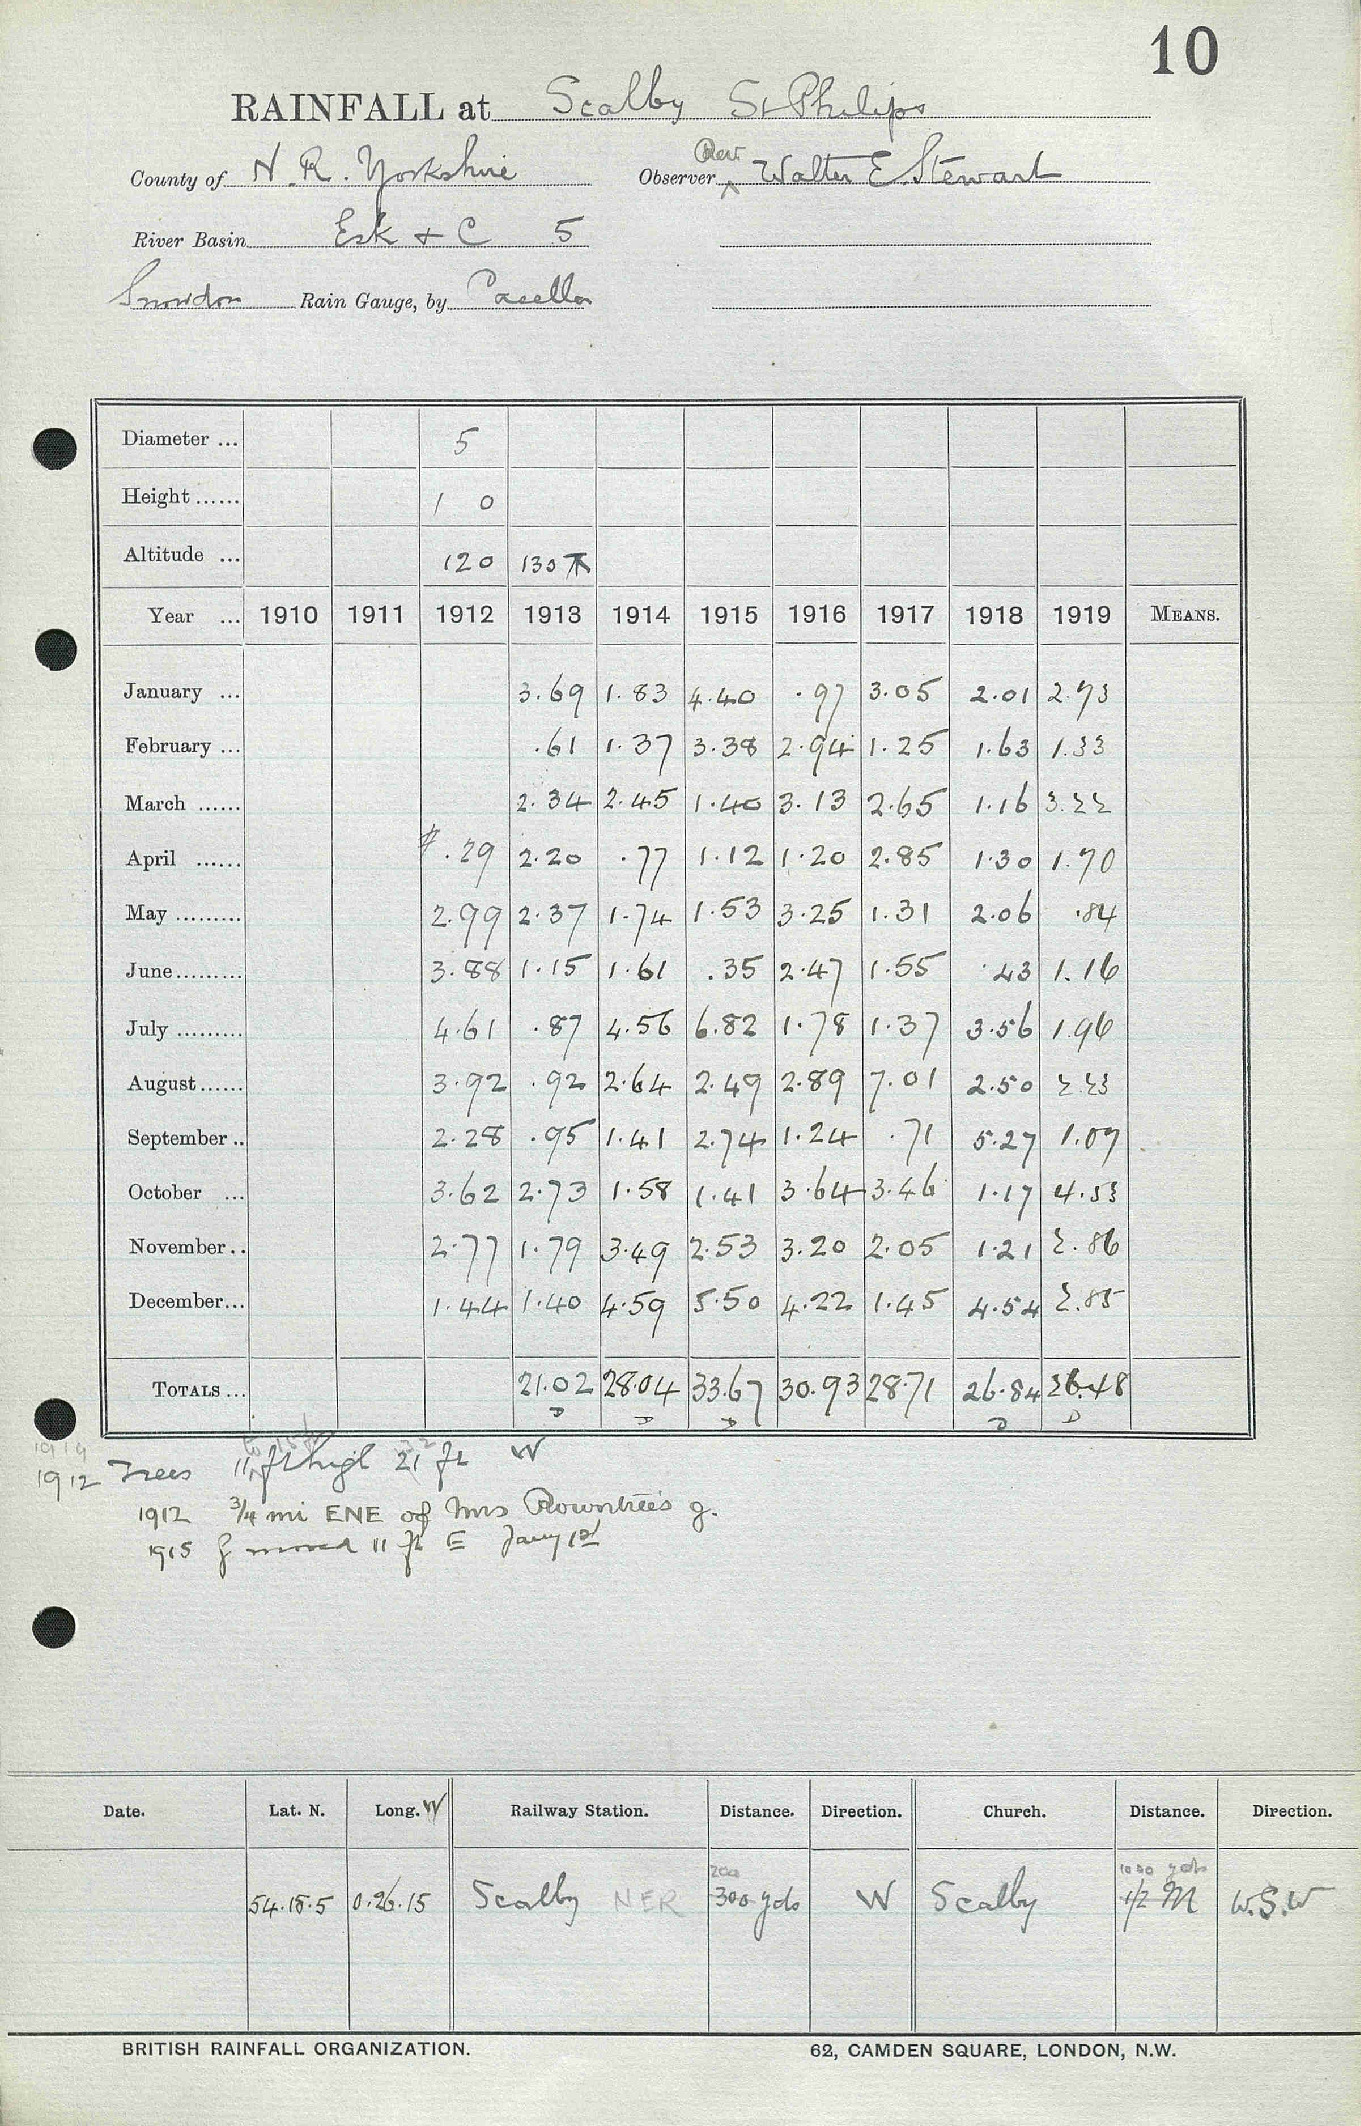 10
RAINFALL at Scalby St Philips
County of N. R. Yorkshire Observer Rev Walter E. Stewart
River Basin Esk + C 5
Snowdon Rain Gauge, by Casella
Diameter ... 5
Height ...... 1 0
Altitude ... 120 130
Year ... 1910 1911 1912 1913 1914 1915 1916 1917 1918 1919 MEANS.
January ... 3.69 1.83 4.40 .97 3.05 2.01 2.73
February ... .61 1.37 3.38 2.94 1.25 1.63 1.33
March ...... 2.34 2.45 1.40 3.13 2.65 1.16 3.22
April ...... # .29 2.20 .77 1.12 1.20 2.85 1.30 1.70
May ......... 2.99 2.37 1.74 1.53 3.25 1.31 2.06 .84
June ......... 3.88 1.15 1.61 .35 2.47 1.55 .43 1.16
July ......... 4.61 .87 4.56 6.82 1.78 1.37 3.56 1.96
August ...... 3.92 .92 2.64 2.49 2.89 7.01 2.50 2.23
September .. 2.28 .95 1.41 2.74 1.24 .71 5.27 1.07
October ... 3.62 2.73 1.58 1.41 3.64 3.46 1.17 4.53
November .. 2.77 1.79 3.49 2.53 3.20 2.05 1.21 2.86
December ... 1.44 1.40 4.59 5.50 4.22 1.45 4.54 2.85
TOTALS ... 21.02 28.04 33.67 30.93 28.71 26.84 26.48
D D D D D
1919
1912 Trees 11 ft high 21 ft W
1912 3/4 mi ENE of Mrs Rowntree's g.
1915 g moved 11 ft E Jany 1st
Date. Lat. N. Long. W Railway Station. Distance. Direction. Church. Distance. Direction.
200 1000 yds
54.18.5 0.26.15 Scalby NER 300 yds W Scalby 1/2 M W.S.W
BRITISH RAINFALL ORGANIZATION. 62, CAMDEN SQUARE, LONDON, N.W.